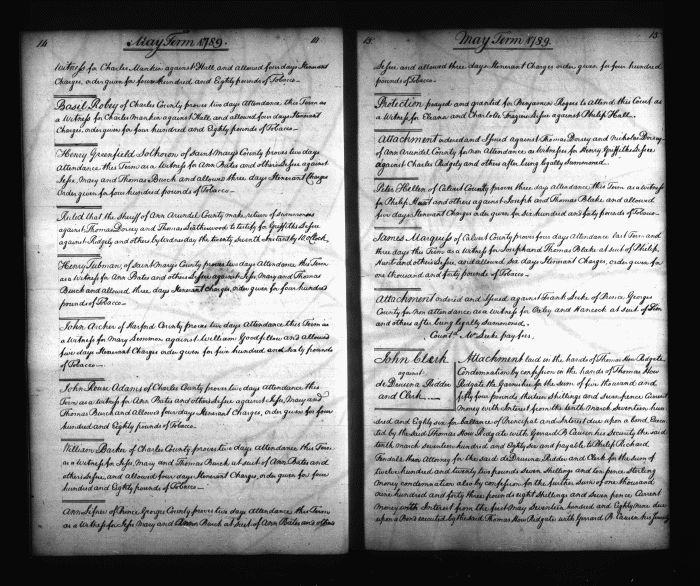 14 May Term 1789. 14
Witness for Charles Mankin against Hall, and allowed four days Itenerant
Charges, order given for four hundred and Eighty pounds of Tobacco
Basil Robey of Charles County proves two days Attendance this Term as
a Witness for Charles Mankin against Hall, and allowed four days Itenerant
Charges, order given for four hundred and Eighty pounds of Tobacco
Henry Greenfield Sothoron of Saint Marys County proves two days
Attendance this Term as a Witness for Ann Bates and others Lessee against
Jesse, Mary and Thomas Burch and allowed three days Itenerant Charges
order given for four hundred pounds of Tobacco
Ruled that the Sheriff of Ann Arundel County make return of summonses
against Thomas Dorsey and Thomas to testify for Griffiths Lessee
against Ridgely and others by Wednesday the twenty seventh Instant by 10 oClock
Henry Tubman, of Saint Marys County proves two days Attendance this Term
as a Witness for Ann Bates and others Lessee against Jesse, Mary and Thomas
Burch and allowed three days Itenerant Charges, order given for four hundred
pounds of Tobacco
John Archer of Harford County proves two days Attendance this Term as
a Witness for Mary Lemmon against William Goodfellow and allowed
five days Itenerant Charges order given for five hundred and sixty pounds
of Tobacco
John Rouse Adams of Charles County proves two days Attendance this
Term as a Witness for Ann Bates and others Lessee against Jesse, Mary and
Thomas Burch and allowed four days Itenerant Charges, order given for four
hundred and Eighty pounds of Tobacco
William Barker of Charles County proves two days Attendance this Term
as a Witness for Jesse, Mary and Thomas Burch at suit of Ann Bates and
others Lessee, and allowed four days Itenerant Charges, order given for four
hundred and Eighty pounds of Tobacco
Ann of Prince Georges County proves two days Attendance this Term
as a Witness for Jesse Mary and Burch at Suit of Ann Bates and others
15 May Term 1789. 15
Lessee and allowed three days Itenerant Charges order given for four hundred
pounds of Tobacco
Protection prayed and granted for Benjamin Rogers to Attend this Court as
a Witness for and Charlotte Lessee against Philip Hall
Attachment ordered and Issued against Thomas Dorsey and Nicholas Dorsey
of Ann Arundel County for non Attendance as Witness for Henry Griffiths Lessee
against Charles Ridgely and others after being legally Summoned
Peter Hellen of Calvert County proves three days attendance this Term as a Witness
for Philip Hunt and others against Joseph and Thomas Blake and allowed
five days Itenerant Charges order given for six hundred and forty pounds of Tobacco
James Marquess of Calvert County proves four days Attendance last Term and
three days this Term as a Witness for Joseph and Thomas Blake at suit of Philip
Hunt and others Lessee and allowed six days Itenerant Charges, order given for
one thousand and forty pounds of Tobacco
Attachment ordered and Issued against Frank Leeke of Prince Georges
County for non Attendance as a Witness for and Hancock at suit of
and others after being legally summoned.
Countd. Mr Leeke pay fees.
John Clerk
against
de Drusina Ridder
and Clerk
Attachment laid in the hands of Thomas How Ridgate
Condemnation by confession in the hands of Thomas How
Ridgate the Garnishee for the sum of five thousand and
fifty four pounds thirteen shillings and seven pence Current
Money with Interest from the tenth March seventeen hun
dred and Eighty six for ballance of Principal and Interest due upon a bond Execu
ted by the said Thomas How Ridgate with Gerrard B. Causin his security the said
tenth march seventeen hundred and Eighty six and payable to Philip Richard
Fendall then Attorney for the said de Drusina Ridder and Clerk for the sum of
twelve hundred and twenty two pounds seven Shillings and ten pence Sterling
Money condemnation also by confession for the further sum of one thousand
nine hundred and forty three pounds eight Shillings and seven pence Current
Money with Interest from the first May Seventeen hundred and Eighty nine due
upon a Bond executed by the said Thomas How Ridgate with Gerrard B. Causin his Security